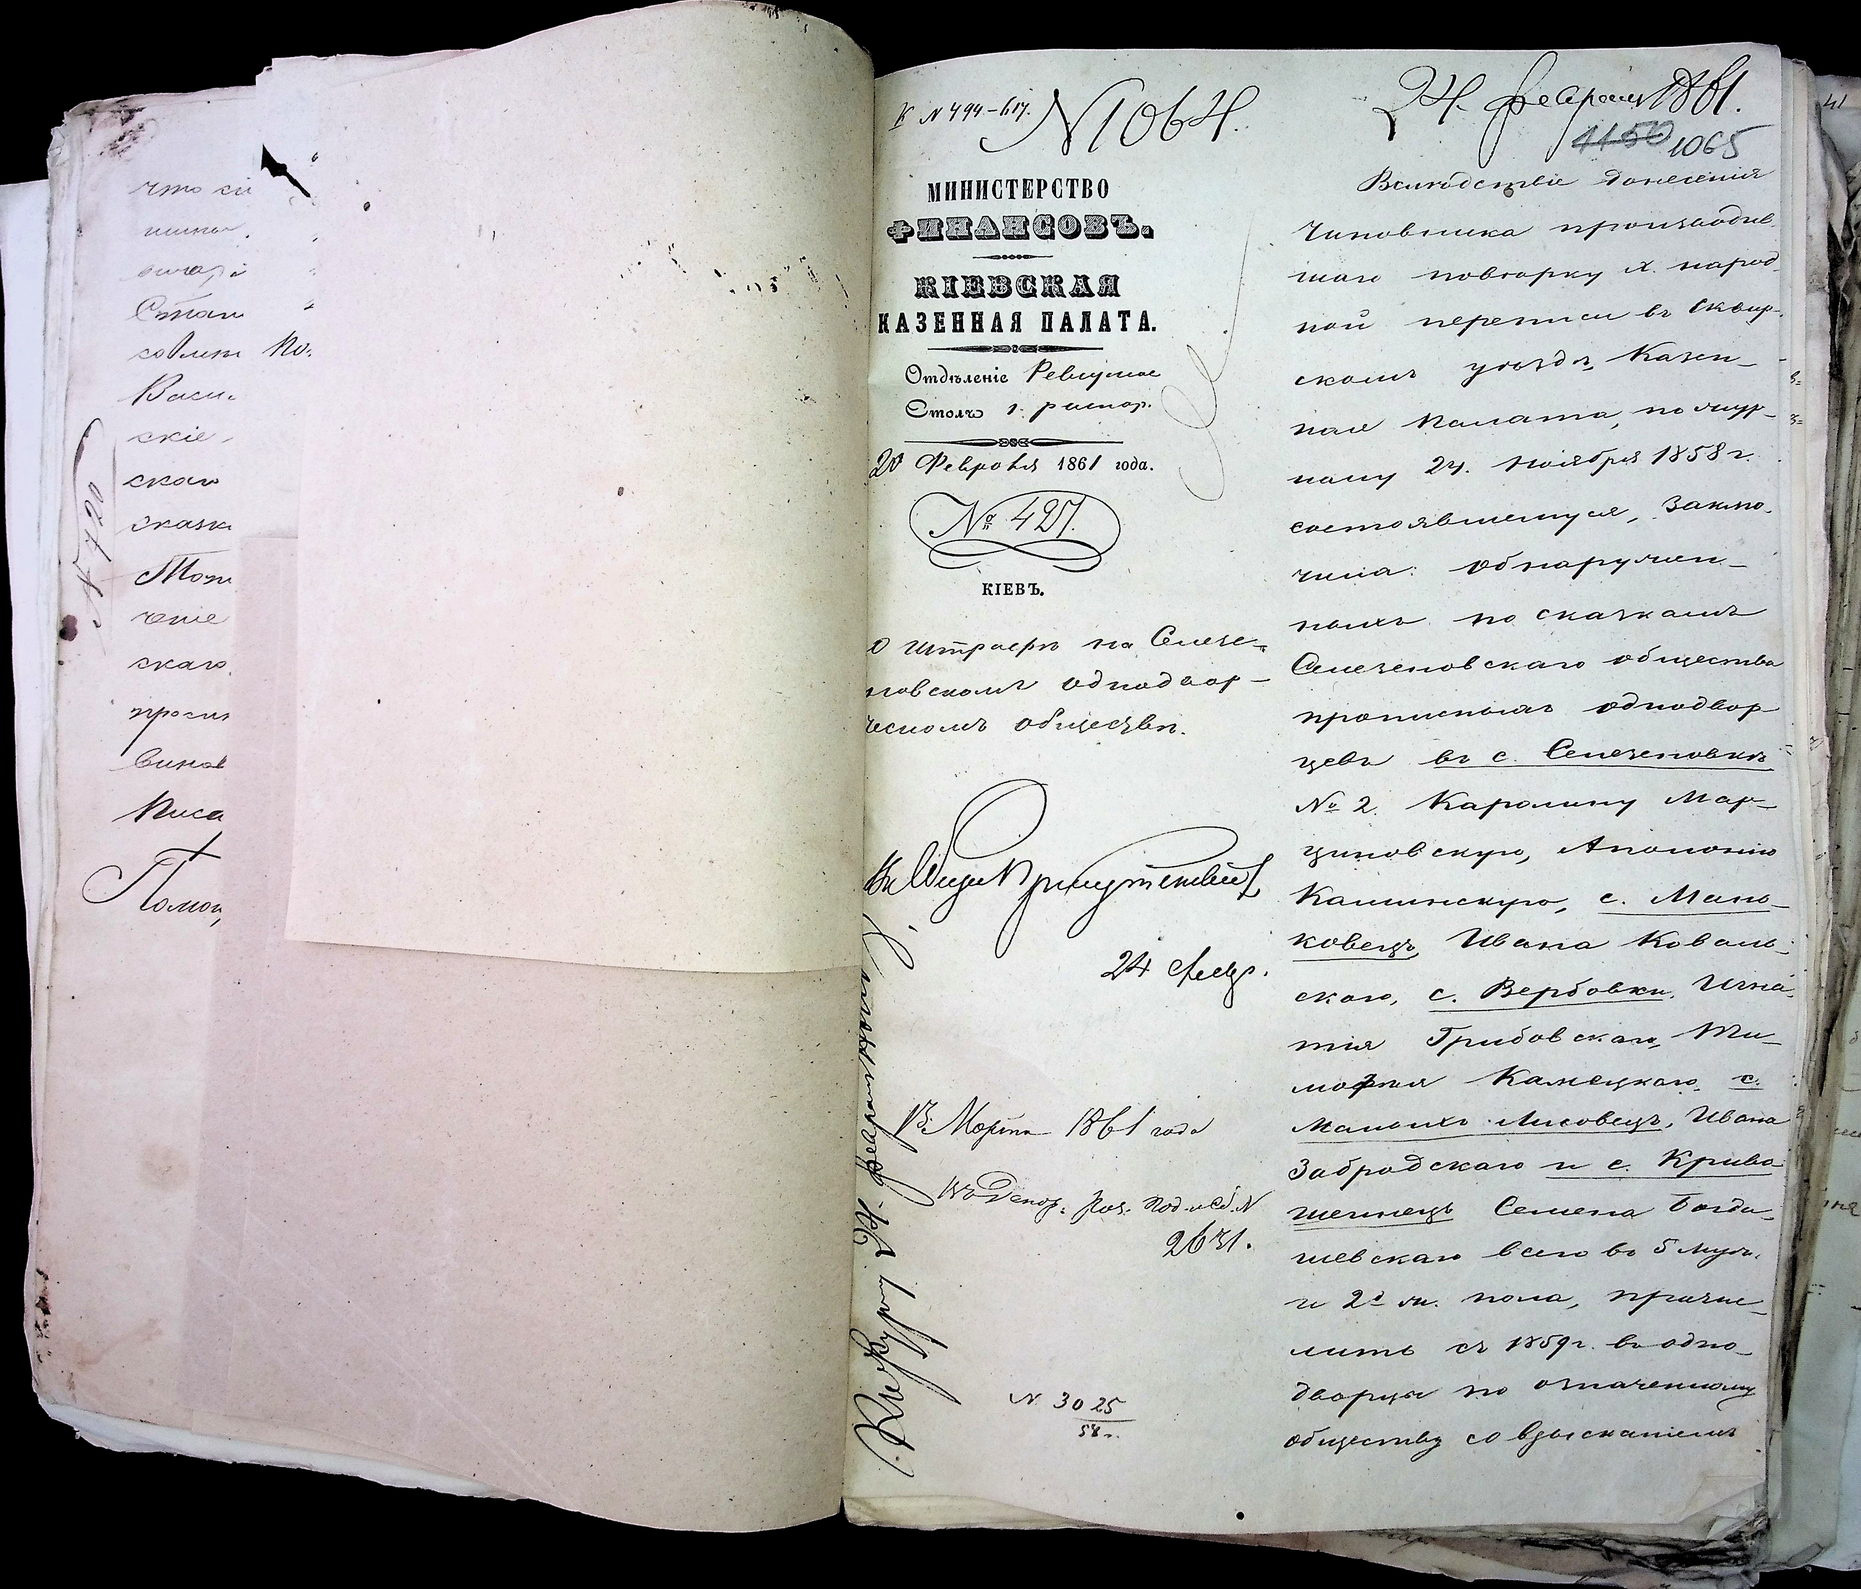 что сіе
Стан
совмин По
Васи
скіе
скаго
сказк
Мож
чение
скаго
проси
винов
Писа
Помощ
N 720
К N 494-617.
N 1064.
24. февраля 1861.
4150 1065
МИНИСТЕРСТВО
ФИНАНСОВЪ.
КІЕВСКАЯ
КАЗЕННАЯ ПАЛАТА.
Отдѣленіе Ревизское
Столъ 1. распор.
20 Февраля 1861 года.
№ 427.
КІЕВЪ.
О штрафѣ на Селезе-
новскомъ однодвор-
ческомъ обществѣ.
Въ Общ. Присутствіи
24 февр.
13 Марта 1861 года
N 2631.
N 3025
58 г.
24. февраля
Вслѣдствіе донесенія
чиновника производив
шаго повѣрку X. народ
ной переписи въ Сквир-
скомъ уѣздѣ, Казен-
ная Палата, по жур-
налу 24. Ноября 1858 г.
состоявшемуся, заклю-
чила: обнаружен-
ныхъ по сказкамъ
Селезеновскаго общества
прописныхъ однодвор
цевъ въ с. Селезеновкѣ
№ 2. Каролину Мар-
циновскую, Аполонію
Каминскую, с. Мань-
ковецъ, Ивана Коваль-
скаго, с. Вербовки, Игна-
тія Грибовскаго, Ти-
мофея Камецкаго, с.
Малыхъ Лисовецъ, Ивана
Забродскаго и с. Криво
шеинецъ Семена Богда-
шевскаго всего въ 5 муж.
и 2х ж. пола, причис-
лить съ 1859 г. въ одно-
дворцы по означенному
обществу со взысканіемъ